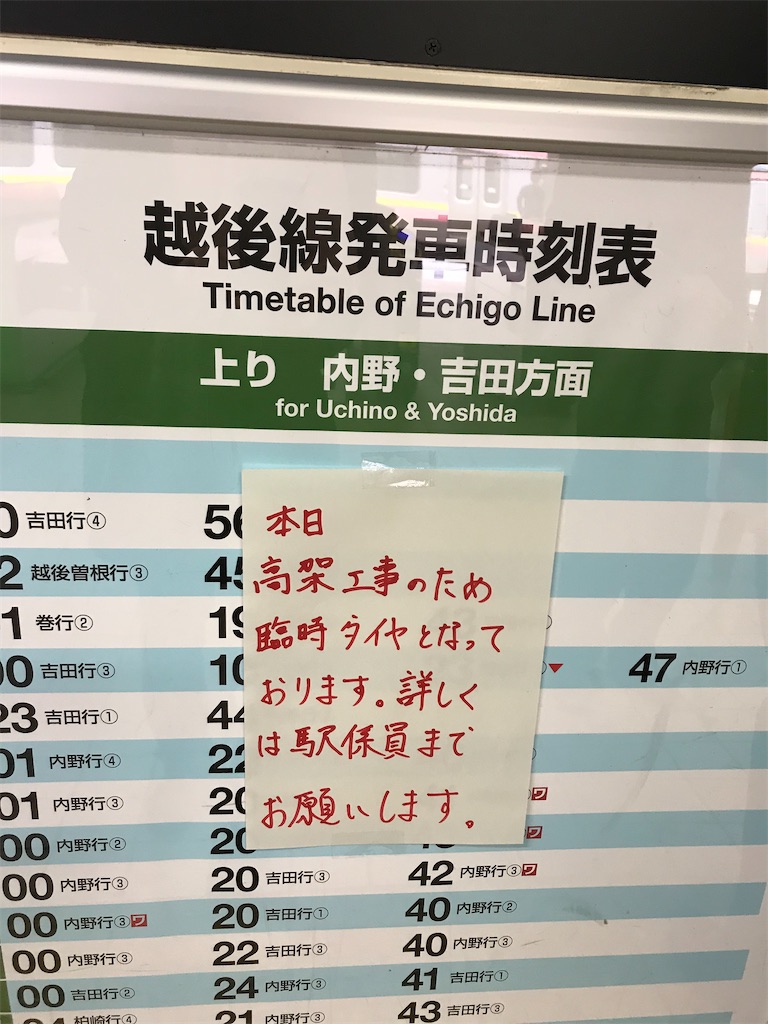 越後線発車時刻表
Timetable of Echigo Line
上り 内野・吉田方面
for Uchino & Yoshida
本日
高架工事のため
臨時ダイヤとなって
おります。詳しく
は駅係員まで
お願いします。
0 吉田行④ 56
2 越後曽根行③ 45
1 巻行② 19
00 吉田行③ 10 47 内野行①
23 吉田行① 44
01 内野行④ 22
01 内野行③ 20 ワ
00 内野行② 20 ワ
00 内野行③ 20 吉田行③ 42 内野行③ワ
00 内野行③ワ 20 吉田行① 40 内野行②
00 内野行③ 22 吉田行③ 40 内野行③
00 吉田行② 24 内野行③ 41 吉田行①
柏崎行④ 21 内野行③ 43 吉田行③